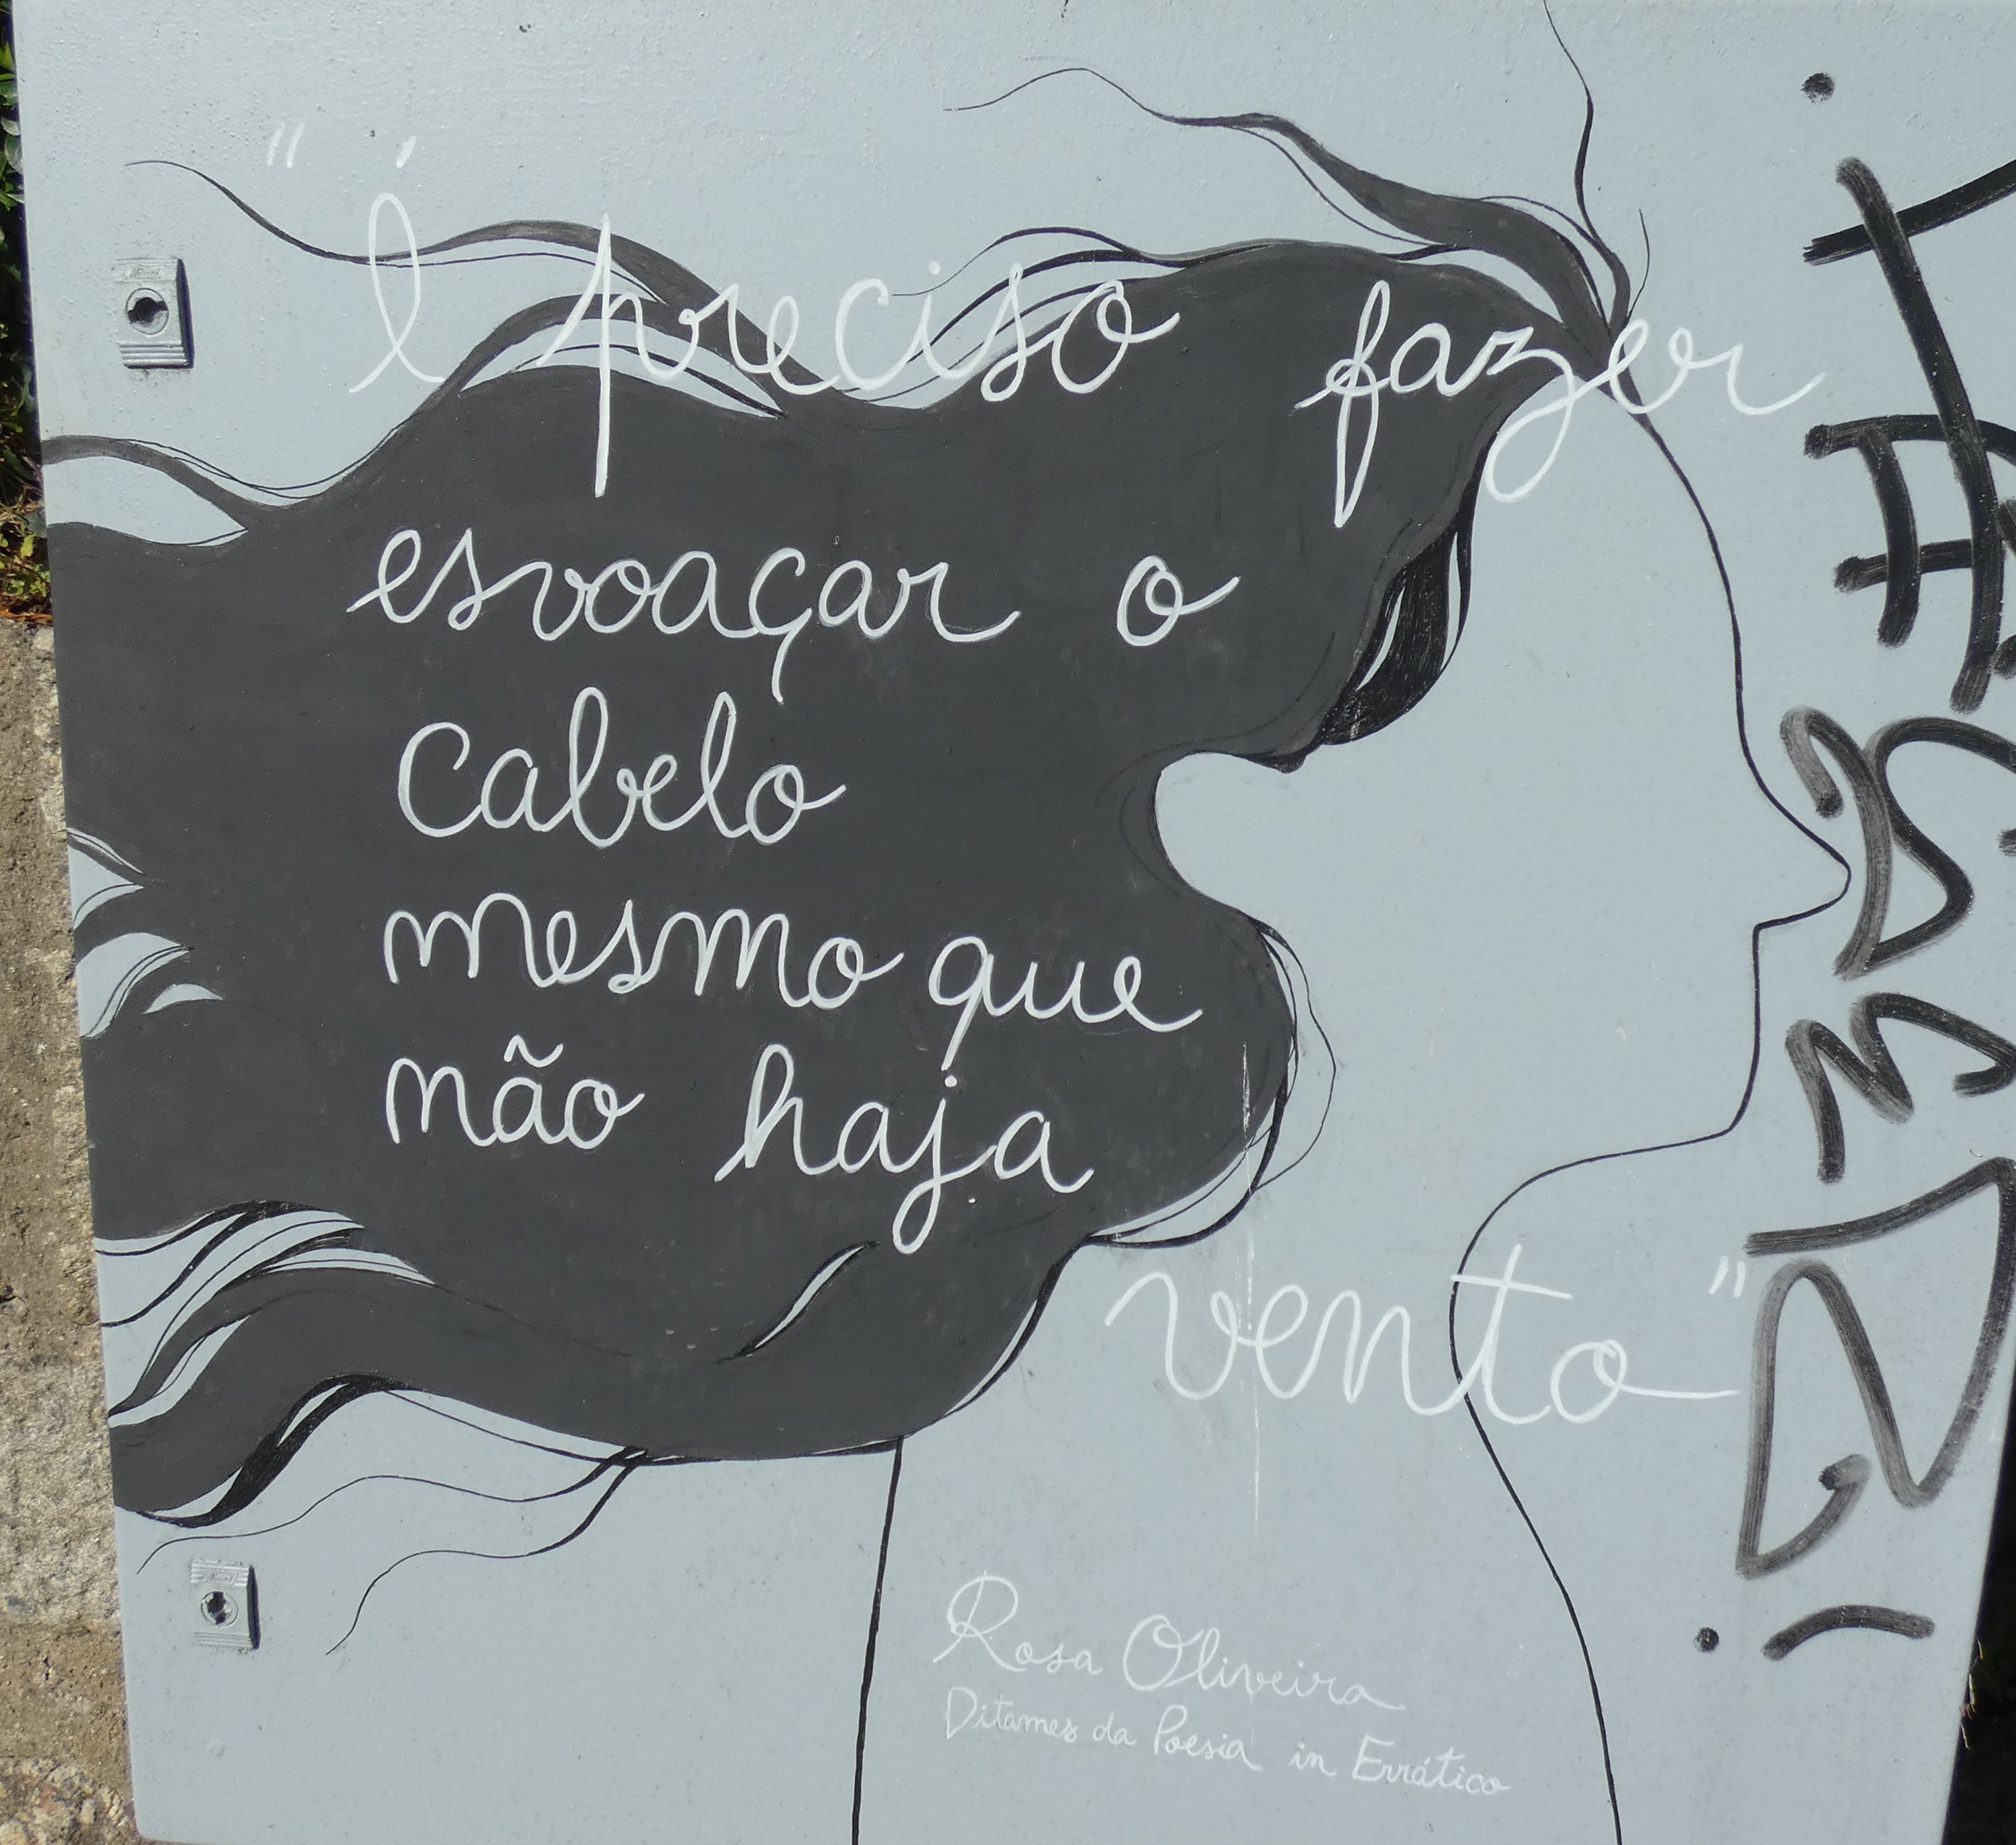 "é preciso fazer
esvoaçar o
cabelo
mesmo que
não haja
vento"
Rosa Oliveira
Ditames da Poesia in Errático